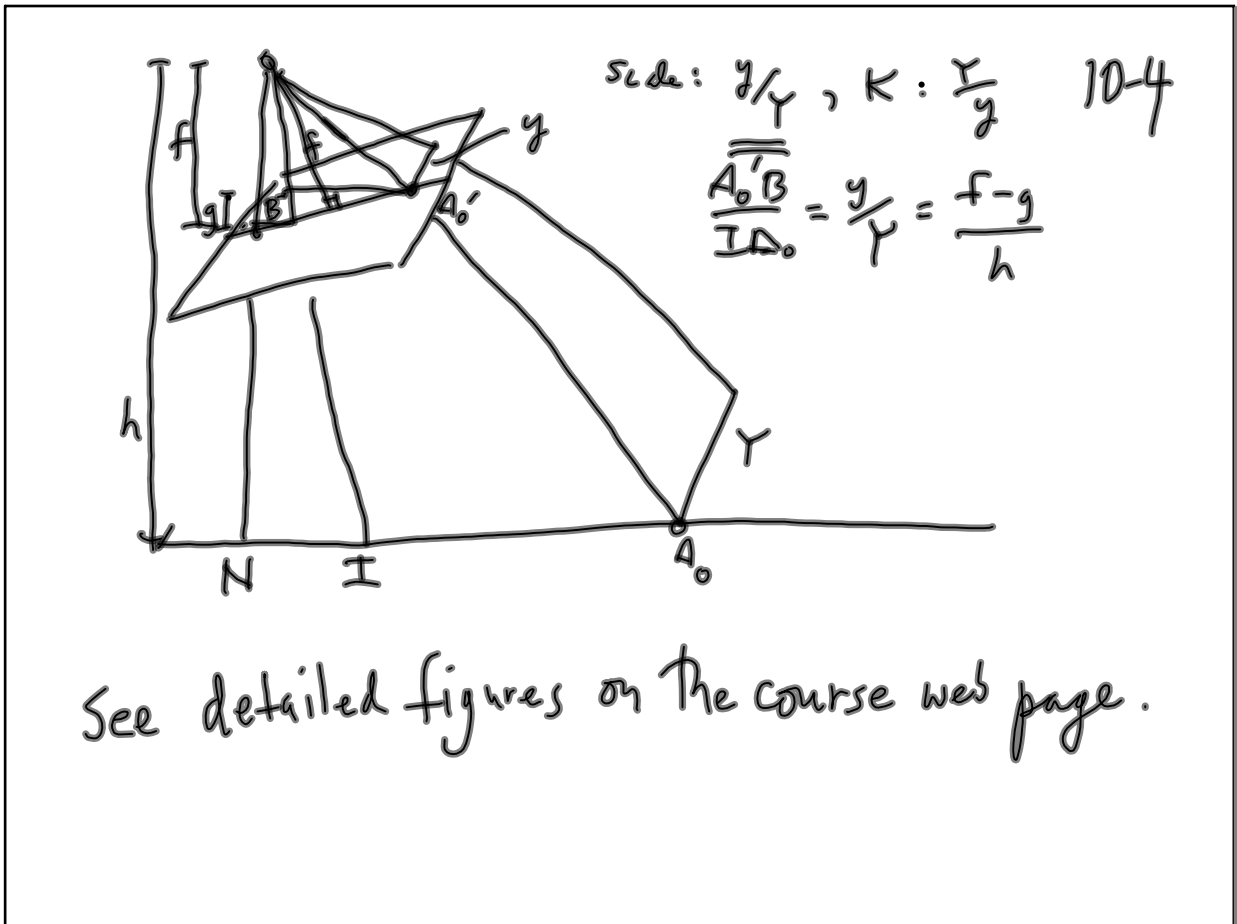 Scale: y/Y , K : Y/y 10-4
A₀'B/IA₀ = y/Y = f-g/h
f
f
y
g
I
B
H
A₀'
h
Y
N I A₀
See detailed figures on the course web page.